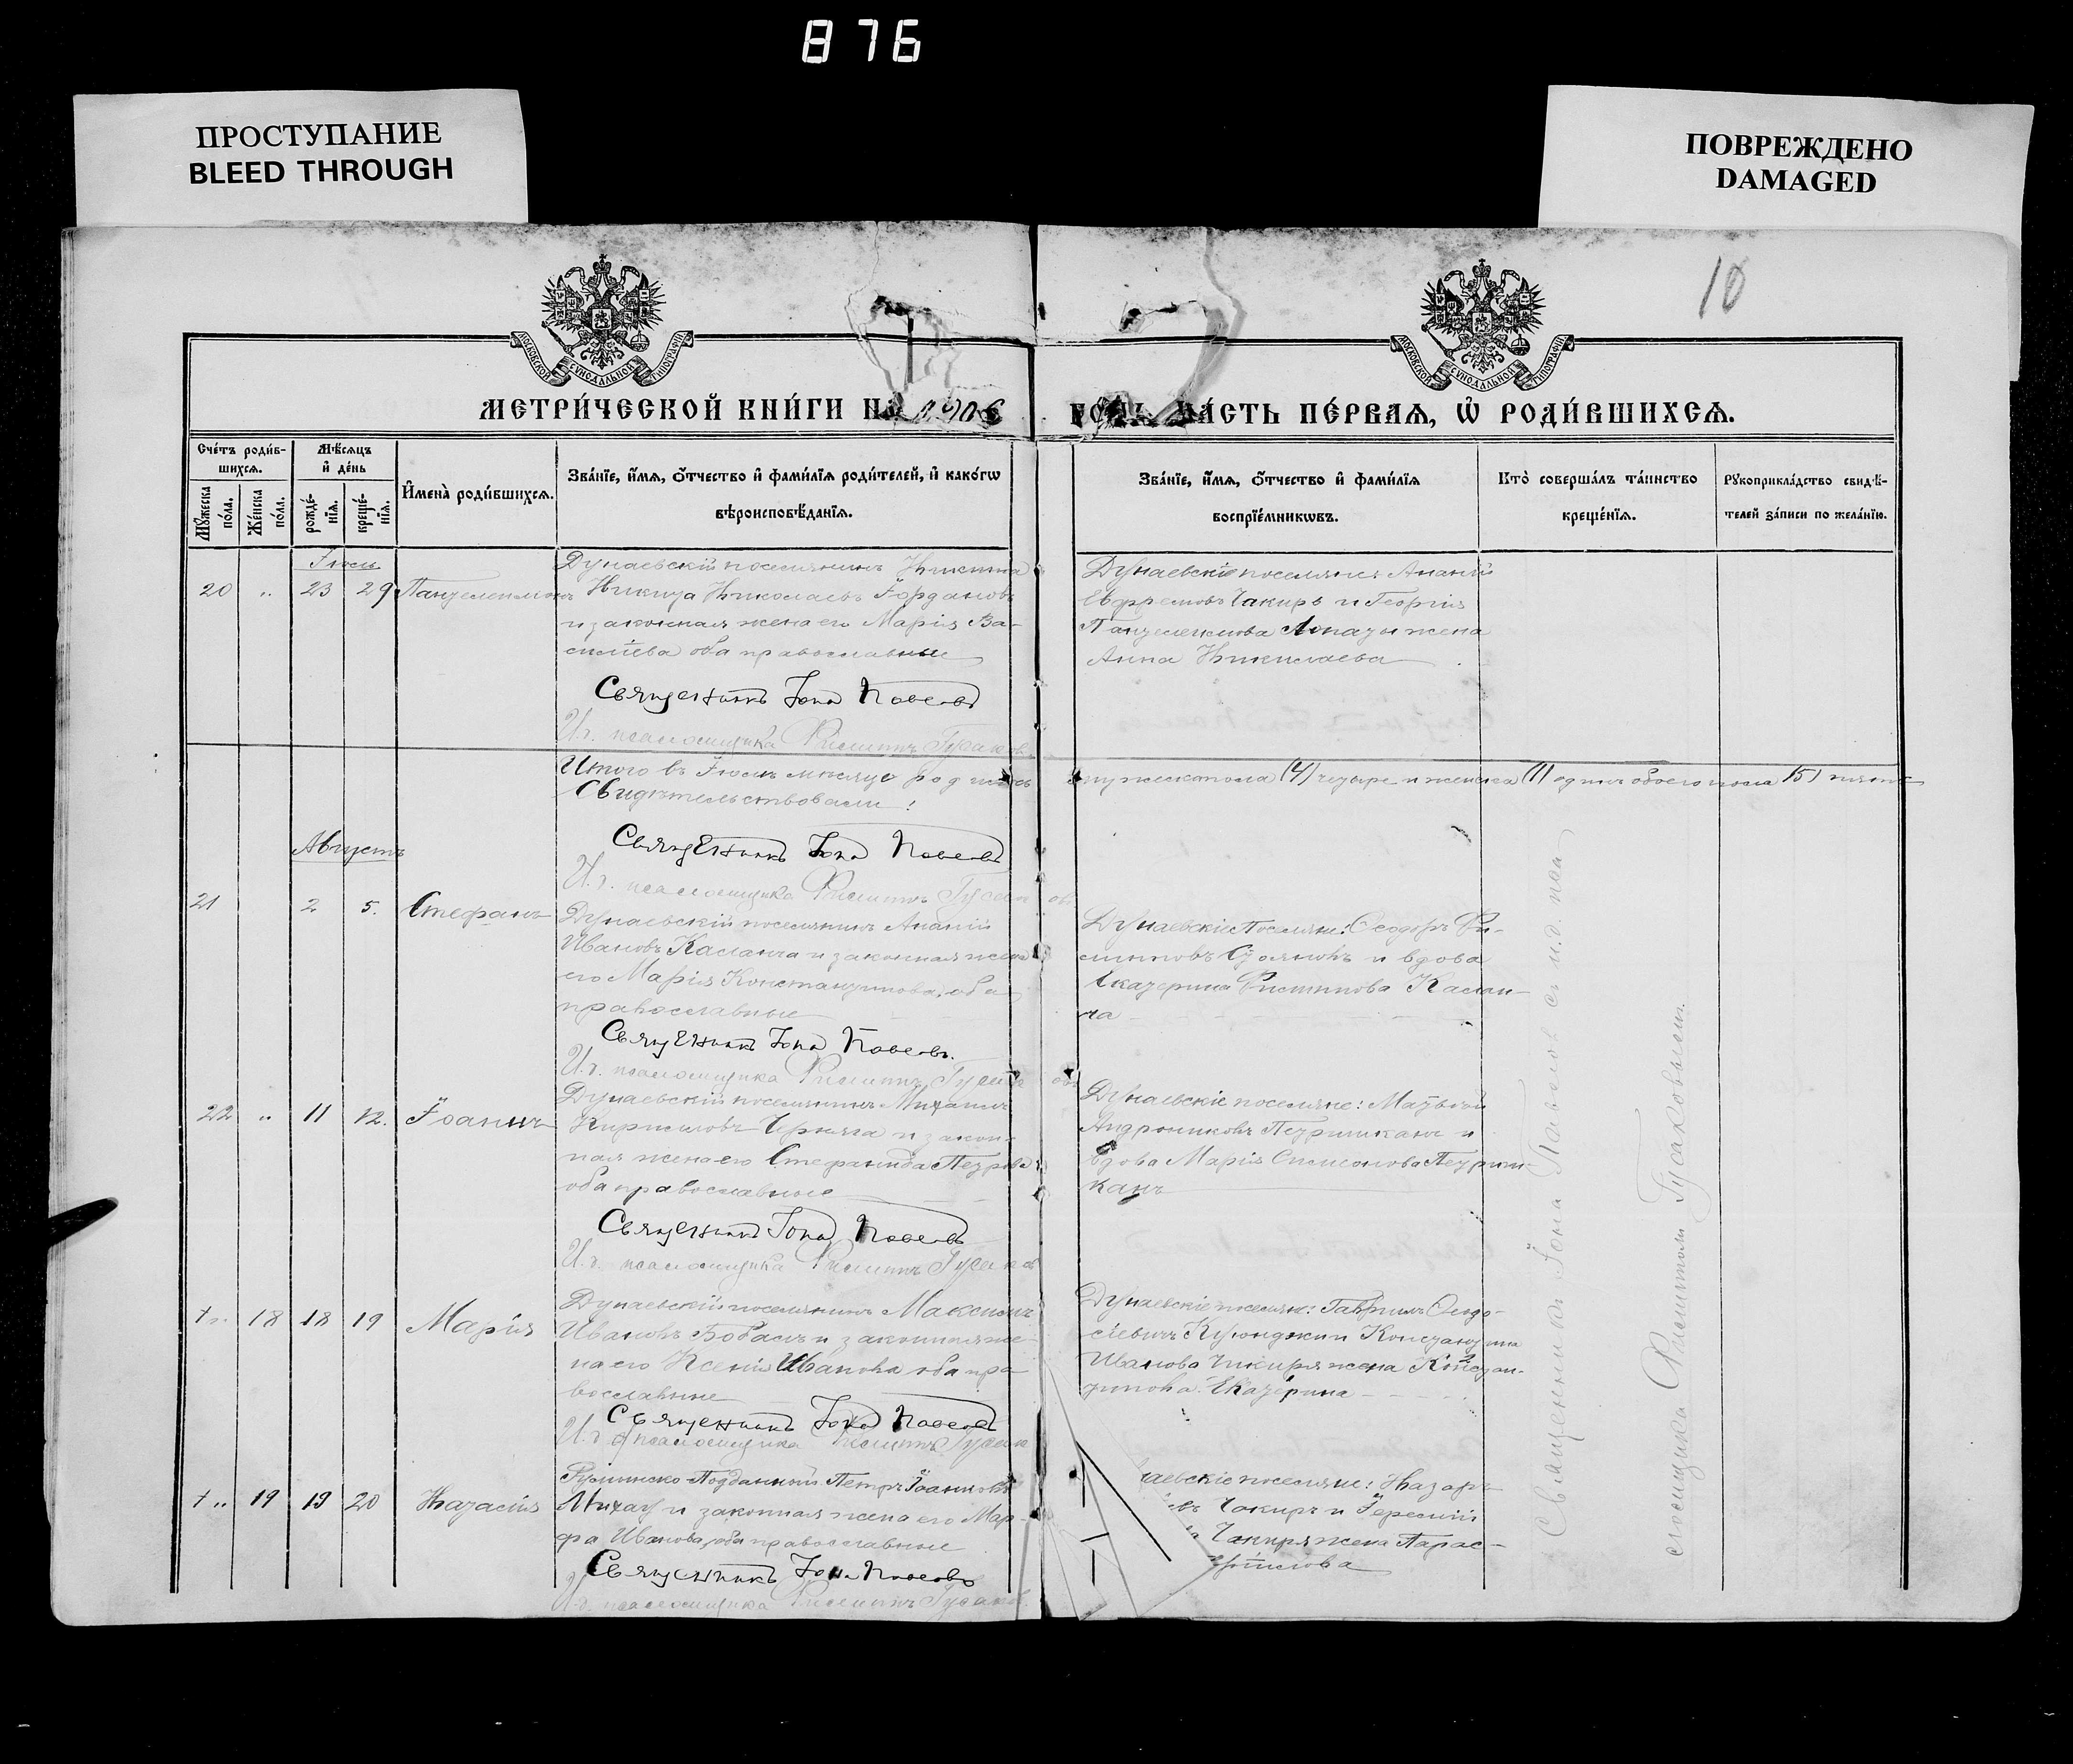 876
ПРОСТУПАНИЕ
BLEED THROUGH
ПОВРЕЖДЕНО
DAMAGED
10
МОСКОВСКОЙ СѴНОДАЛЬНОЙ ТИПОГРАФІИ
МОСКОВСКОЙ СѴНОДАЛЬНОЙ ТИПОГРАФІИ
МЕТРИ́ЧЕСКОЙ КНИ́ГИ Н 1906
ЧА́СТЬ ПЕ́РВАЯ, Ѡ҆ РОДИ́ВШИХСѦ.
Сче́тъ роди́в-
шихсѧ.
Мѣ́сѧцъ
и҆ де́нь
Мꙋ́жеска
по́ла.
Же́нска
по́ла.
рожде́-
нїѧ.
креще́-
нїѧ.
И҆мена̀ роди́вшихсѧ.
Зва́нїе, и҆́мѧ, ѻ҆́тчество и҆ фами́лїѧ роди́телей, и҆ како́гѡ
вѣроисповѣ́данїѧ.
Зва́нїе, и҆́мѧ, ѻ҆́тчество и҆ фами́лїѧ
воспрїе́мникѡвъ.
Кто̀ соверша́лъ та́инство
креще́нїѧ.
Рꙋкоприкла́дство свидѣ́-
телей за́писи по жела́нїю.
Іюль
20 „ 23 29 Пантелеимонъ
Дунаевскій поселянинъ Никита
Никита Николаевъ Іордановъ
и законная жена его Марія Ва-
силіева оба православные
Священникъ Іона Павловъ
И. д. псаломщика Филиппъ Гусаковъ
Дунаевскіе поселяне: Ананій
Ефремовъ Чакиръ и Георгія
Пантелеимова жена
Анна Николаева
Итого въ Іюлѣ мѣсяцѣ родилось
мужеска пола (4) четыре и женска (1) одинъ обоего пола (5) пять
Свидѣтельствовали:
Священникъ Іона Павловъ
И. д. псаломщика Филиппъ Гусаковъ
Августъ
21 2 5. Стефанъ
Дунаевскій поселянинъ Ананій
Ивановъ Касланга и законная жена
его Марія Константинова, оба
православные
Священникъ Іона Павловъ.
И. д. псаломщика Филиппъ Гусаковъ
Дунаевскіе Поселяне: Ѳеодоръ Фи-
липповъ Стояновъ и вдова
Екатерина Филиппова Каслан-
га
22 „ 11 12. Іоаннъ
Дунаевскій поселянинъ Михаилъ
Кирилловъ Черняга и закон-
ная жена его Стефанида Петрова
оба православные
Священникъ Іона Павловъ
И. д. псаломщика Филиппъ Гусаковъ
Дунаевскіе поселяне: Матвѣй
Андрониковъ Петриманъ и
вдова Марія Симеонова
канъ
„ 18 18 19 Марія
Дунаевскій поселянинъ Максимъ
Ивановъ и законная же-
на его Ксенія Иванова оба пра-
вославные
Священникъ Іона Павловъ
И. д. псаломщика Филиппъ Гусаковъ
Дунаевскіе поселяне: Гавріилъ Ѳеодо-
сіевичъ Куюнджи и Константина
Иванова Чакиря жена Констан-
тинова Екатерина
„ 19 19 20 Наталія
Румынско-Подданный Петръ Іоанновъ
Михау и законная жена его Мар-
фа Иванова, оба православные
Священникъ Іона Павловъ
И. д. псаломщика Филиппъ Гусаковъ
наевскіе поселяне: Назаръ
Чакиръ и Іеремій
Чакиря жена Парас-
Священникъ Іона Павловъ съ и. д. пса
ломщика Филиппомъ Гусаковымъ.